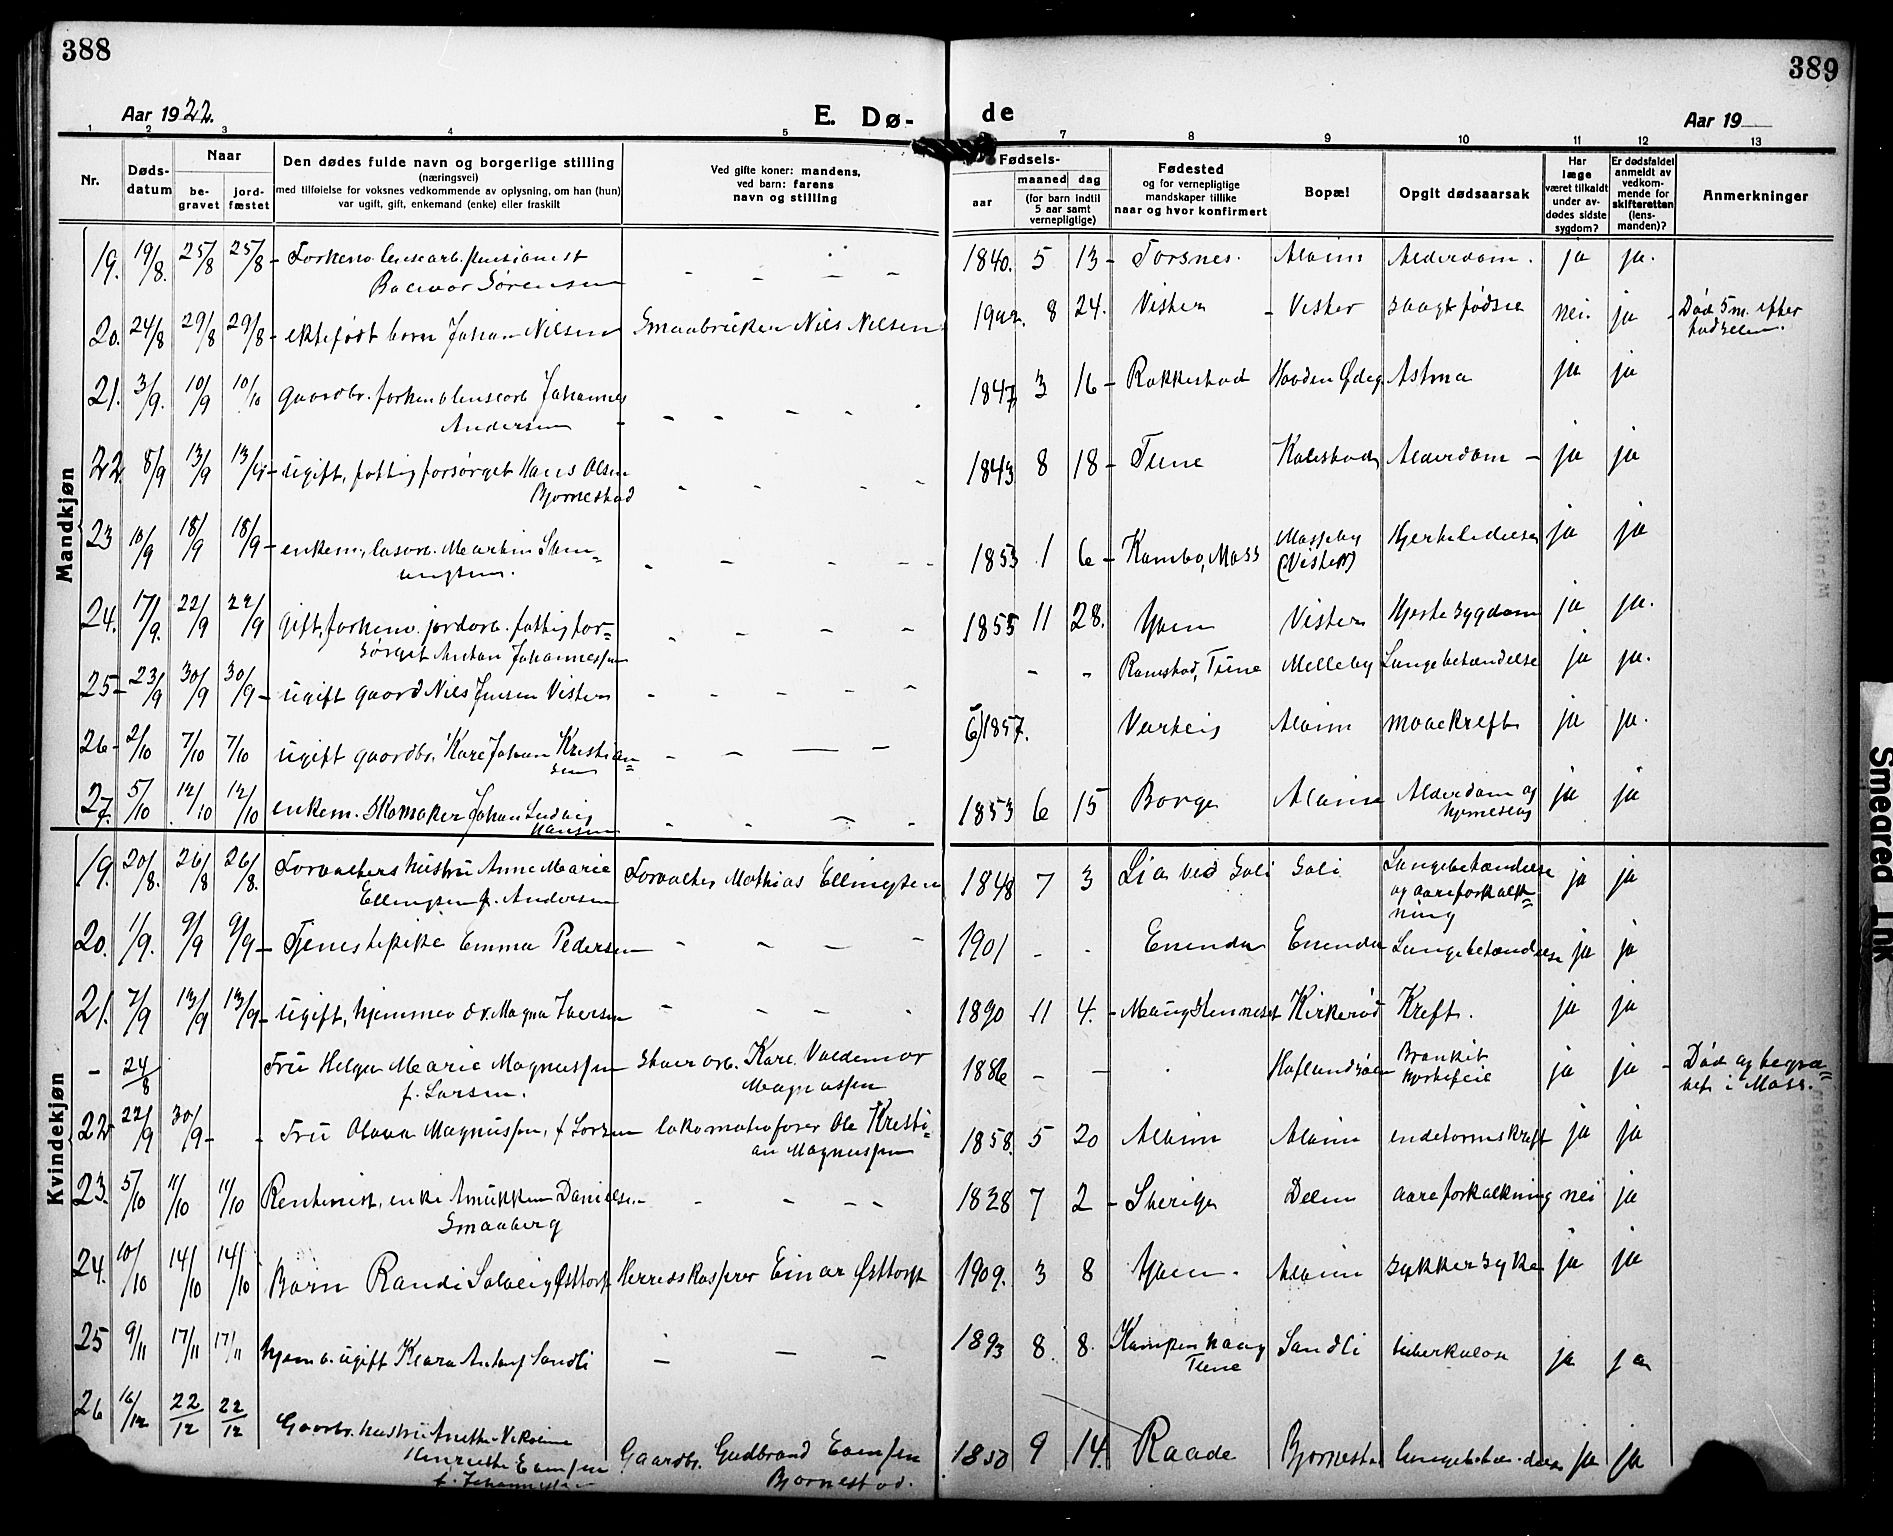 388
389
Aar 1922.
E. Dø-
de
Aar 19
1 2 3 4 5 7 8 9 10 11 12 13
Nr.
Døds-
datum
Naar
be-
gravet
jord-
fæstet
Den dødes fulde navn og borgerlige stilling
(næringsvei)
med tilføielse for voksnes vedkommende av oplysning, om han (hun)
var ugift, gift, enkemand (enke) eller fraskilt
Ved gifte koner: mandens,
ved barn: farens
navn og stilling
Fødsels-
aar
maaned
dag
(for barn indtil
5 aar samt
vernepligtige)
Fødested
og for vernepligtige
mandskaper tillike
naar og hvor konfirmert
Bopæl
Opgit dødsaarsak
Har
læge
været tilkaldt
under av-
dødes sidste
sygdom?
Er dødsfaldet
anmeldt av
vedkom-
mende for
skifteretten
(lens-
manden)?
Anmerkninger
Mandkjøn
19. 19/8. 25/8 25/8 - Sørensen 1840. 5 13 - Torsnes. Alvim Alderdom. ja ja.
20. 24/8 29/8 29/8 - ektefødt barn Johan Nilsen Smaabruker Nils Nilsen 1922. 8 24. Vister - Vister svagt fødsel nei. ja - Død 5 m. efter
fødselen.
21. 3/9. 10/9 10/10 gaardbr. Johannes
Andersen 1847 3 16 - Rakkestad Astma ja ja
22 8/9 13/9 - ugift, fattigforsørget Hans Olsen
Bjørnestad 1843 8 18 - Tune Kalestad Alderdom - ja ja
23 10/9 18/9 18/9 - enkem., Martin 1853 1 6 - Kambo, Moss Mosseby
(Vister) Hjertelidelse ja ja
24. 17/9. 22/9 22/9 gift, forhenv. jordarb. fattigfor-
sørget Anton Johannessen 1855 11 28. Yven Vister Hjertesygdom ja ja.
25 - 23/9 30/9 30/9 - ugift gaard Nils Jensen Vister - - Ramstad, Tune Melleby Lungebetændelse ja ja.
26 - 2/10 7/10 7/10 ugift gaardbr. Karl Johan Kristian-
sen 1857. Varteig Alvim mavekreft ja ja.
27. 5/10 12/10 12/10 enkem. Skomaker Johan Ludvig
Hansen 1853 6 15 Borge Alvim Alderdom og
hjerneslag ja ja
Kvindekjøn
19. 20/8. 26/8 26/8. Forvalters hustru Anne Marie
Ellingsen f. Andersen Forvalter Mathias Ellingsen 1848 7 3 Lia ved Soli Soli Lungebetændelse
og aareforkalk-
ning ja ja
20. 1/9. 9/9 9/9 - Tjenestepike Emma Pedersen 1901 - - Enenda Enenda Lungebetændelse ja ja
21. 7/9 13/9 13/9 - ugift, hjemmev. Magna Iversen 1890 11 4. - Kirkerød Kreft. ja ja
- 24/8 Fru Helga Marie Magnussen
f. Larsen. Karl Valdemar
Magnussen 1886 - - Haflundsøen Bronkit
Hjertefeil ja ja - Død og begra-
vet i Moss.
22 22/9 30/9 - - Fru Olava Magnussen, f Larsen lokomotivfører Ole Kristi-
an Magnussen 1858. 5 20 Alvim Alvim endetarmskreft ja ja
23. 5/10 11/10 11/10 Rentenist, enke Danielsen
Smaaberg 1828 7 2 - Sverige aareforkalkning nei ja
24. 10/10 14/10 14/10 Barn Randi Solveig Østtorp Herredskasserer Einar Østtorp 1909. 3 8 Yven. Alvim sukkersyke ja ja
25 9/11 17/11 17/11 hjemv. ugift Klara Sandli 1893 8 8. Kampenhaug
Tune Sandli tuberkulose ja ja
26 16/12 22/12 22/12 Gaardbr. hustru Anette Nikoline
Henriette Evensen
f. Johannessen Gaardbr. Gudbrand Evensen
Bjørnestad. 1850 9 14. Raade Bjørnestad lungebetændelse ja ja
Smeared Ink